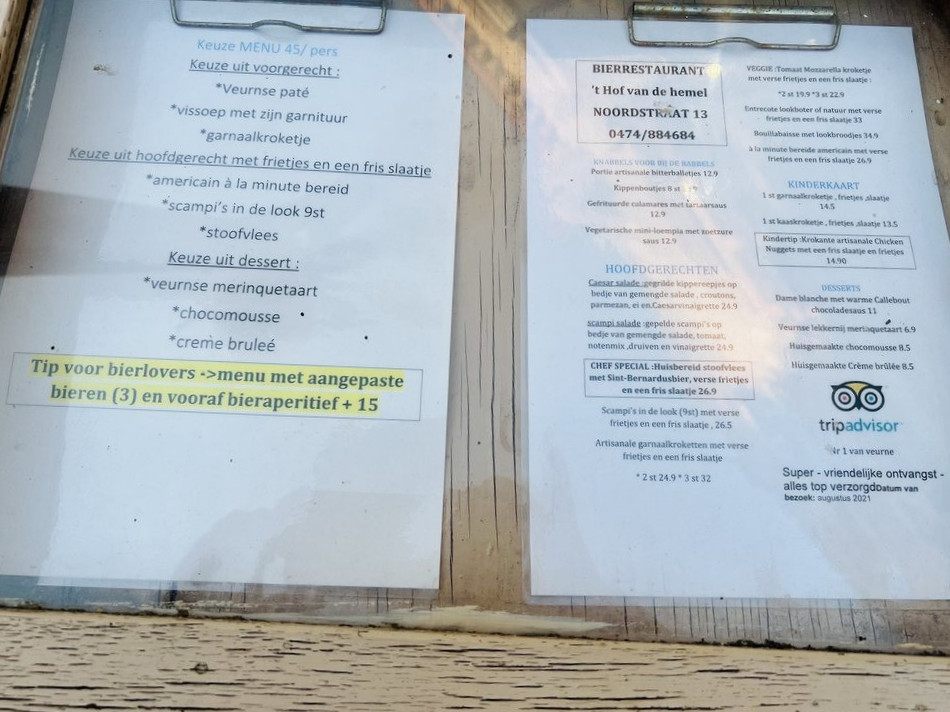 Keuze MENU 45/ pers
Keuze uit voorgerecht :
*Veurnse paté
*vissoep met zijn garnituur
*garnaalkroketje
Keuze uit hoofdgerecht met frietjes en een fris slaatje
*americain à la minute bereid
*scampi's in de look 9st
*stoofvlees
Keuze uit dessert :
*veurnse merinquetaart
*chocomousse
*creme bruleé
Tip voor bierlovers ->menu met aangepaste
bieren (3) en vooraf bieraperitief + 15
BIERRESTAURANT
't Hof van de hemel
NOORDSTRAAT 13
0474/884684
KNABBELS VOOR BIJ DE BABBELS
Portie artisanale bitterballetjes 12.9
Kippenboutjes 8 st
Gefrituurde calamares met tartaarsaus
12.9
Vegetarische mini-loempia met zoetzure
saus 12.9
HOOFDGERECHTEN
Caesar salade :gegrilde kippereepjes op
bedje van gemengde salade , croutons,
parmezan, ei en.Caesarvinaigrette 24.9
scampi salade :gepelde scampi's op
bedje van gemengde salade, tomaat,
notenmix ,druiven en vinaigrette 24.9
CHEF SPECIAL :Huisbereid stoofvlees
met Sint-Bernardusbier, verse frietjes
en een fris slaatje 26.9
Scampi's in de look (9st) met verse
frietjes en een fris slaatje , 26.5
Artisanale garnaalkroketten met verse
frietjes en een fris slaatje
* 2 st 24.9 * 3 st 32
VEGGIE :Tomaat Mozzarella kroketje
met verse frietjes en een fris slaatje :
*2 st 19.9 *3 st 22.9
Entrecote lookboter of natuur met verse
frietjes en een fris slaatje 33
Bouillabaisse met lookbroodjes 34.9
à la minute bereide americain met verse
frietjes en een fris slaatje 26.9
KINDERKAART
1 st garnaalkroketje , frietjes ,slaatje
14.5
1 st kaaskroketje , frietjes ,slaatje 13.5
Kindertip :Krokante artisanale Chicken
Nuggets met een fris slaatje en frietjes
14.90
DESSERTS
Dame blanche met warme Callebout
chocoladesaus 11
Veurnse lekkernij merinquetaart 6.9
Huisgemaakte chocomousse 8.5
Huisgemaakte Crème brûlée 8.5
tripadvisor
1 van veurne
Super - vriendelijke ontvangst -
alles top verzorgdDatum van
bezoek: augustus 2021